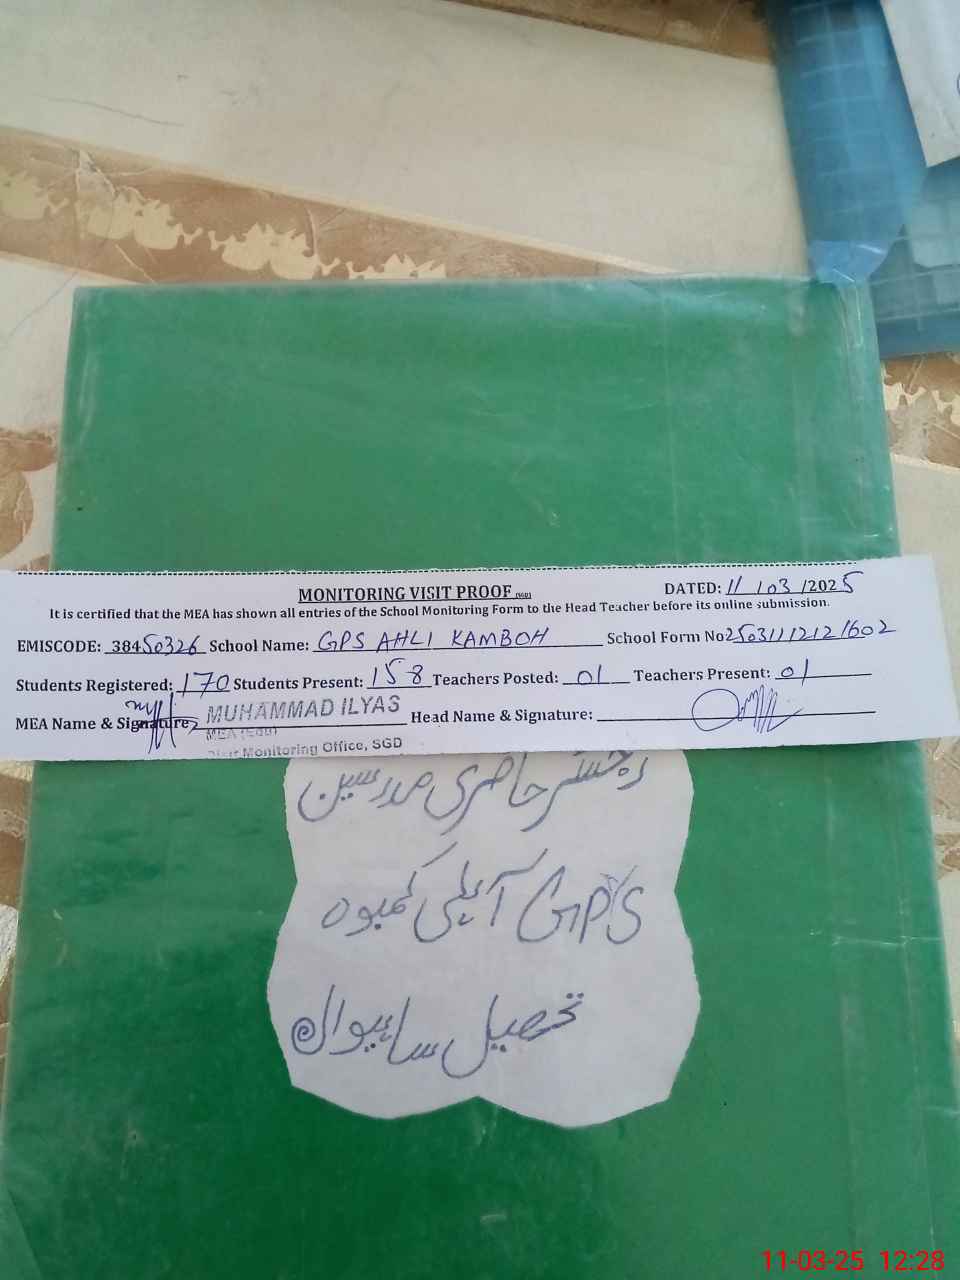 MONITORING VISIT PROOF (SGD)
DATED: 11/03/2025
It is certified that the MEA has shown all entries of the School Monitoring Form to the Head Teacher before its online submission.
EMISCODE: 38450326 School Name: GPS AHLI KAMBOH School Form No 25031112121602
Students Registered: 170 Students Present: 158 Teachers Posted: 01 Teachers Present: 01
MEA Name & Signature: MUHAMMAD ILYAS Head Name & Signature:
MEA (Edu)
Distt Monitoring Office, SGD
رجسٹر حاضری مدرسین
GPS آہلی کمبوہ
تحصیل ساہیوال
11-03-25 12:28